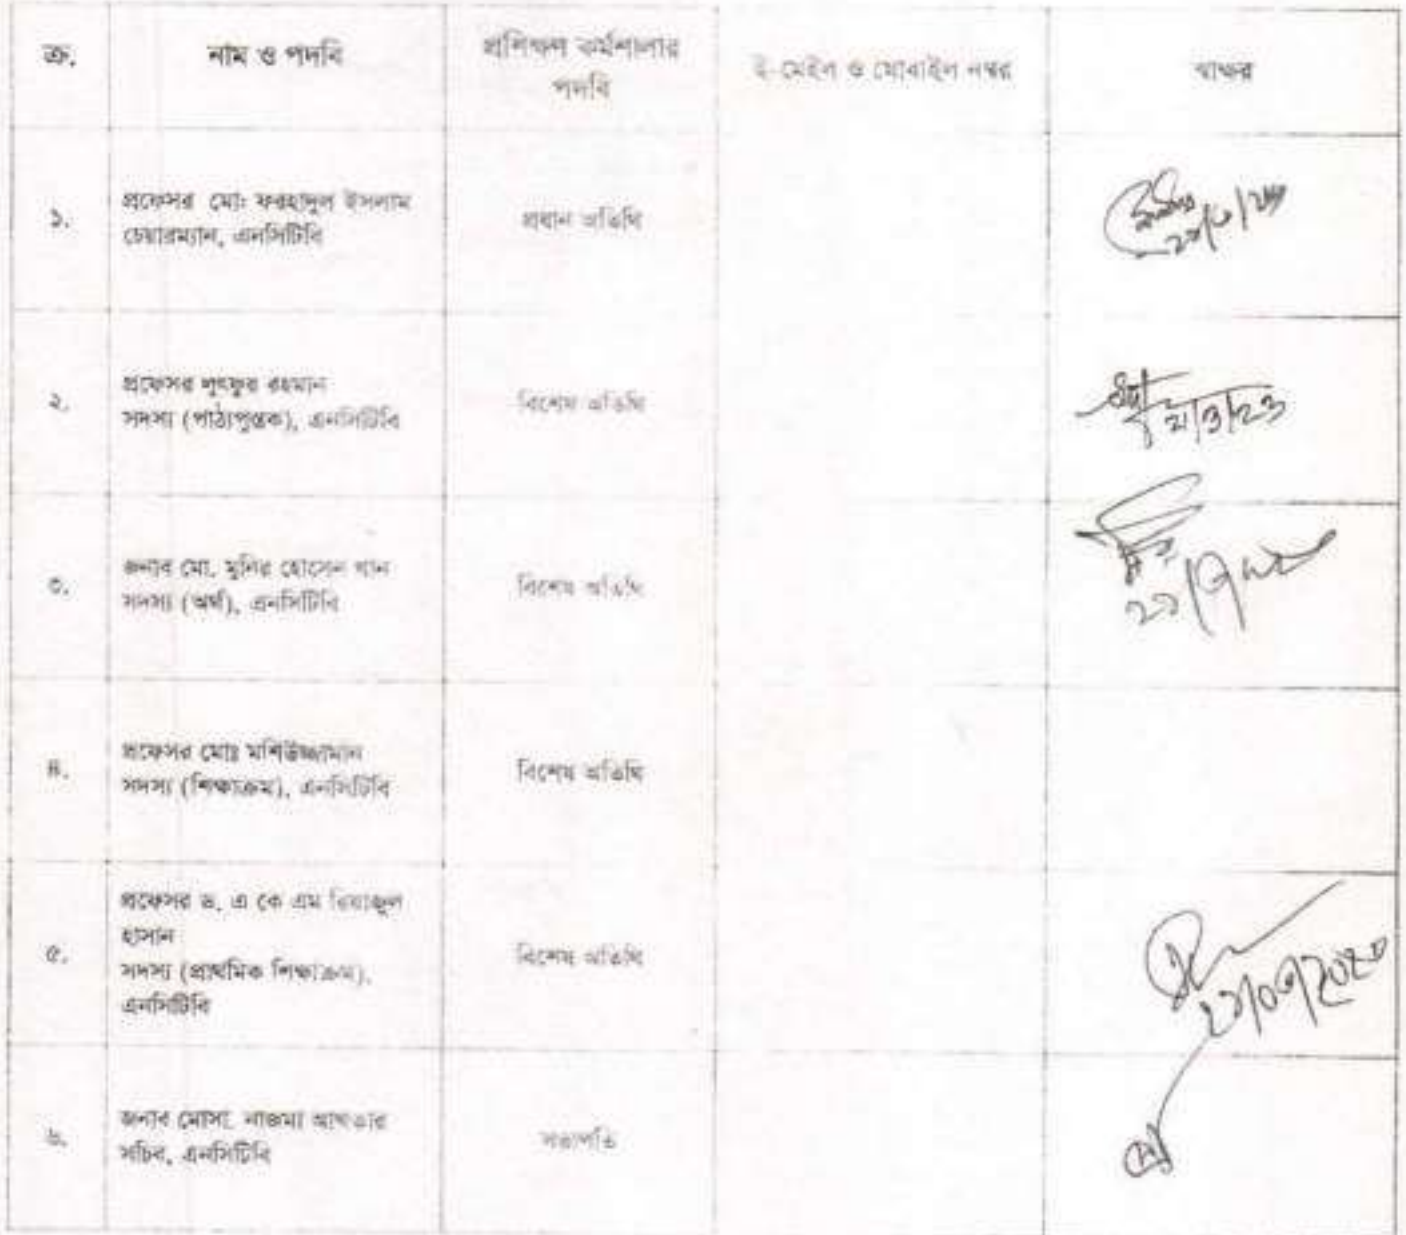 ক্র.
নাম ও পদবি
প্রশিক্ষণ কর্মশালার
পদবি
ই-মেইল ও মোবাইল নম্বর
স্বাক্ষর
১.
প্রফেসর মো: ফরহাদুল ইসলাম
চেয়ারম্যান, এনসিটিবি
প্রধান অতিথি
২.
প্রফেসর লুৎফুর রহমান
সদস্য (পাঠ্যপুস্তক), এনসিটিবি
বিশেষ অতিথি
21/3/23
৩.
জনাব মো. মুনির হোসেন খান
সদস্য (অর্থ), এনসিটিবি
বিশেষ অতিথি
৪.
প্রফেসর মোঃ মশিউজ্জামান
সদস্য (শিক্ষাক্রম), এনসিটিবি
বিশেষ অতিথি
৫.
প্রফেসর ড. এ কে এম রিয়াজুল
হাসান
সদস্য (প্রাথমিক শিক্ষাক্রম),
এনসিটিবি
বিশেষ অতিথি
৬.
জনাব মোসা. নাজমা আখতার
সচিব, এনসিটিবি
সভাপতি